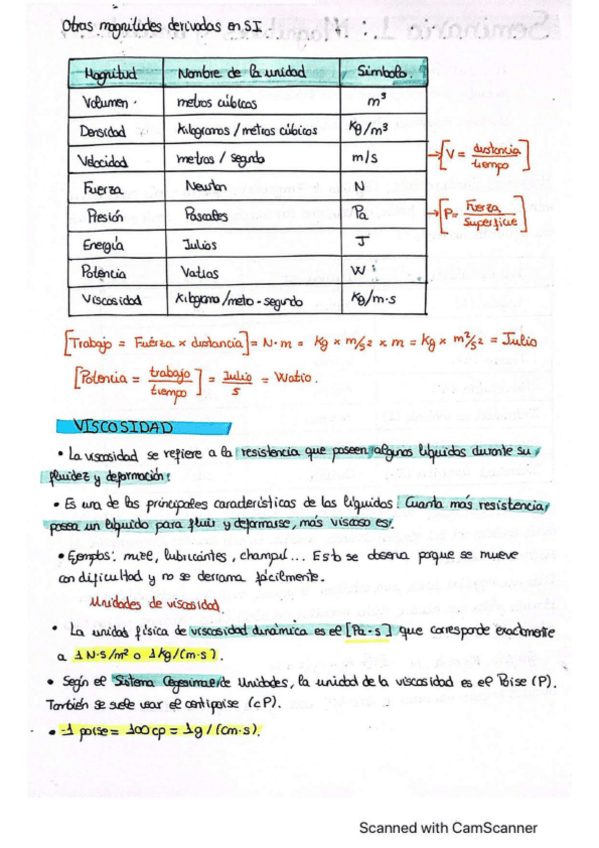 Otras magnitudes derivadas en SI.
Magnitud Nombre de la unidad Símbolo.
Volumen. metros cúbicos m³
Densidad kilogramos / metros cúbicos kg/m³
Velocidad metros / segundo m/s → [V = distancia / tiempo]
Fuerza Newton N
Presión Pascales Pa → [P = Fuerza / Superficie]
Energía Julios J
Potencia Vatios W
Viscosidad Kilogramo/metro · segundo Kg/m·s
[Trabajo = Fuerza × distancia] = N·m = kg × m/s² × m = kg × m²/s² = Julio
[Potencia = trabajo / tiempo] = Julio / s = Watio.
VISCOSIDAD
• La viscosidad se refiere a la resistencia que poseen algunos líquidos durante su
fluidez y deformación.
• Es una de las principales características de los líquidos. Cuanta más resistencia
posea un líquido para fluir y deformarse, más viscoso es.
• Ejemplos: miel, lubricantes, champú... Esto se observa porque se mueve
con dificultad y no se derrama fácilmente.
Unidades de viscosidad
• La unidad física de viscosidad dinámica es el [Pa·s] que corresponde exactamente
a 1 N·s/m² o 1 kg/(m·s).
• Según el Sistema Cegesimal de Unidades, la unidad de la viscosidad es el Poise (P).
También se suele usar el centipoise (cP).
• 1 poise = 100 cp = 1g / (cm·s).
Scanned with CamScanner